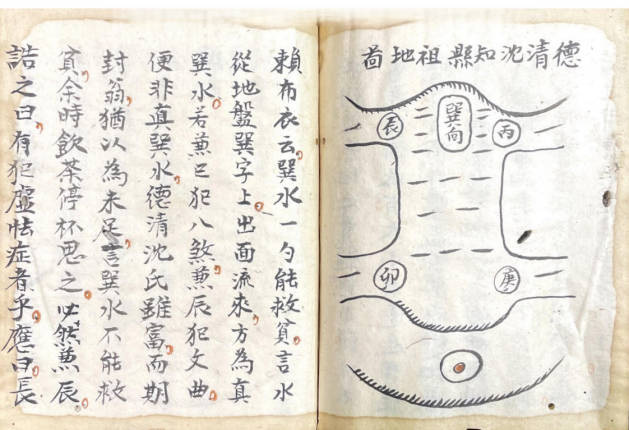 德清沈知縣祖地啚
丙
巽向
辰
庚
卯
賴布衣云巽水一勺能救貧言水
從地盤巽字上出面流來方為真
巽水若兼巳犯八煞兼辰犯文曲
便非真巽水德清沈氏雖富而期
封翁猶以為未足言巽水不能救
貧余時飲茶停杯思之必然兼辰
誥之曰有犯虛怯症者乎應曰長